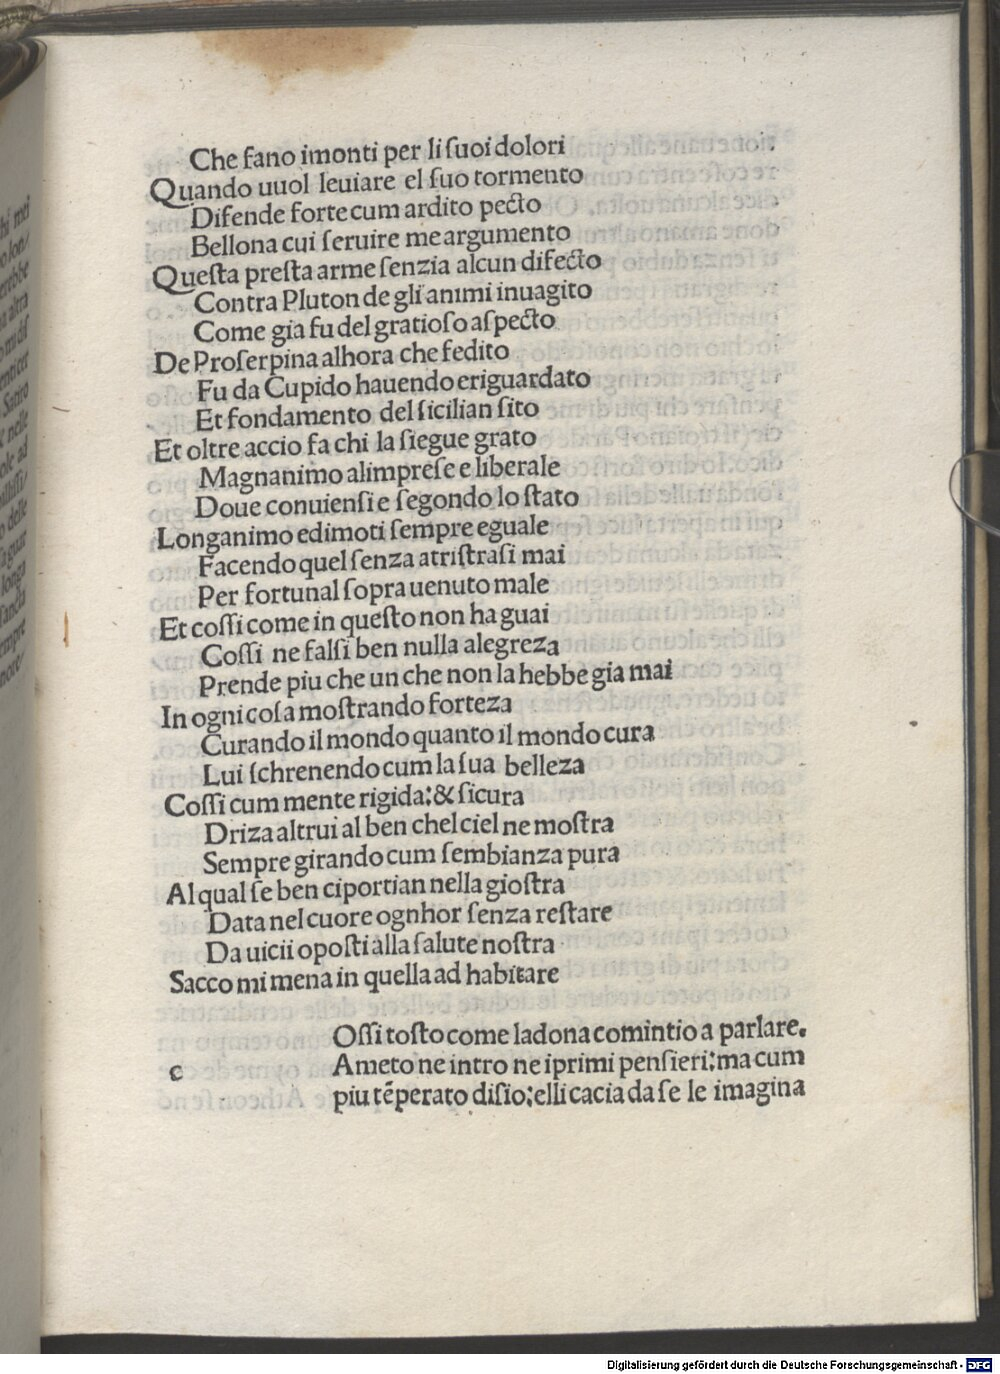 Che fano imonti per li ſuoi dolori
Quando uuol leuiare el ſuo tormento
Difende forte cum ardito pecto
Bellona cui ſeruire me argumento
Queſta preſta arme ſenzia alcun difecto
Contra Pluton de gli animi inuagito
Come gia fu del gratioſo aſpecto
De Proſerpina alhora che fedito
Fu da Cupido hauendo eriguardato
Et fondamento del ſicilian ſito
Et oltre accio fa chi la ſiegue grato
Magnanimo alimpreſe e liberale
Doue conuienſi e ſegondo lo ſtato
Longanimo edimoti ſempre eguale
Facendo quel ſenza atriſtraſi mai
Per fortunal ſopra uenuto male
Et coſſi come in queſto non ha guai
Coſſi ne falſi ben nulla alegreza
Prende piu che un che non la hebbe gia mai
In ogni coſa moſtrando forteza
Curando il mondo quanto il mondo cura
Lui ſchrenendo cum la ſua belleza
Coſſi cum mente rigida:& ſicura
Driza altrui al ben chel ciel ne moſtra
Sempre girando cum ſembianza pura
Al qual ſe ben ciportian nella gioſtra
Data nel cuore ognhor ſenza reſtare
Da uicii opoſti alla ſalute noſtra
Sacco mi mena in quella ad habitare
Oſſi toſto come ladona comintio a parlare.
c Ameto ne intro ne iprimi penſieri:ma cum
piu tēperato diſio:elli cacia da ſe le imagina
Digitalisierung gefördert durch die Deutsche Forschungsgemeinschaft - DFG